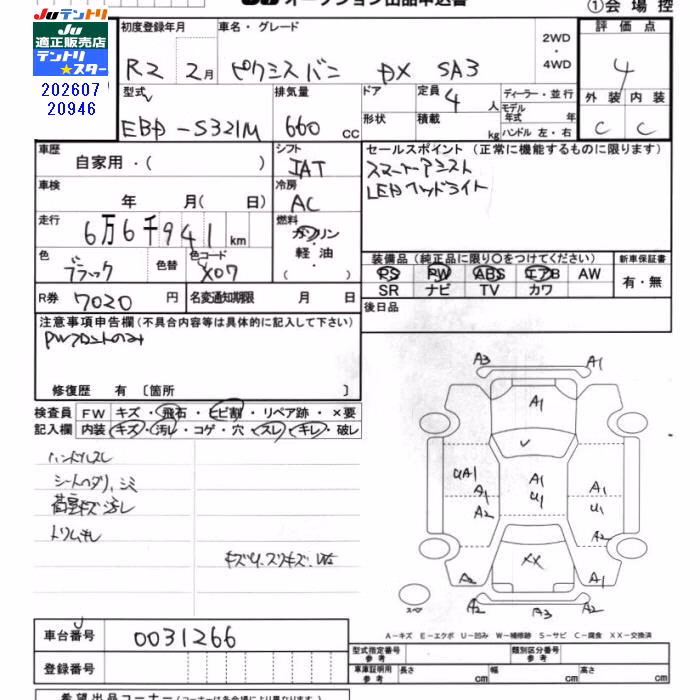 JUテントリ
JU
適正販売店
テントリ
★スター
202607
20946
JU オークション出品申込書
①会場控
初度登録年月
R2 2月
車名・グレード
ピクシスバン DX SA3
2WD
・
4WD
評価点
4
外装 内装
C C
型式
EBD-S321M
排気量
660 cc
ドア
形状
定員 4 人
積載 kg
ディーラー・並行
モデル
年式 年
ハンドル 左・右
車歴
自家用・( )
シフト
IAT
車検
年 月( 日)
冷房
AC
走行
6万6千941 km
燃料
ガソリン
・
軽油
・
色
ブラック
色替
色コード
X07
R券 7020 円
名変通知期限 月 日
セールスポイント (正常に機能するものに限ります)
スマートアシスト
LEDヘッドライト
装備品 (純正品に限り○をつけてください)
PS PW ABS エアB AW
SR ナビ TV カワ
新車保証書
有・無
後日品
注意事項申告欄 (不具合内容等は具体的に記入して下さい)
PWフロントのみ
修復歴 有 〔箇所 〕
検査員
記入欄
FW キズ・飛石・ヒビ割・リペア跡・×要
内装 キズ・汚レ・コゲ・穴・スレ・キレ・破レ
ハンドルスレ
シートヘタリ、シミ
荷室キズ汚レ
トリムキレ
A3 A1
A1
UA1
A1
A2
A1
U1
A1
U1
A2
XX
A2 A1
スペア
A2 A3 A2
A-キズ E-エクボ U-凹み W-補修跡 S-サビ C-腐食 XX-交換済
車台番号 0031266
登録番号
型式指定番号
参考
類別区分番号
参考
車庫証明用
参考
長さ cm
幅 cm
高さ cm
希望出品コーナー